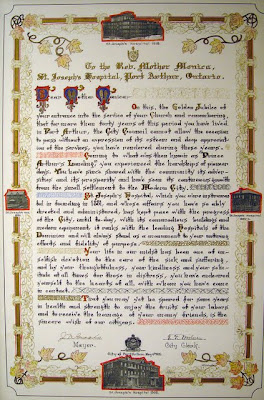 St. Joseph's Hospital
To the Rev. Mother Monica,
St. Joseph's Hospital, Port Arthur, Ontario.
Dear Rev. Mother Monica,
On this, the Golden Jubilee of
your entrance into the service of your Church and remembering,
that for more than forty years of this period you have lived
in Port Arthur, the City Council cannot allow the occasion
to pass without an expression of its esteem and deep appreciation
of the services, you have rendered during these years.
Coming to what was then known as "Prince
Arthur's Landing" you experienced the hardships of pioneer
days. You have since shared with the community its adversities
and its prosperity and have seen its continuous growth
from the small settlement to the Modern City.
St. Joseph's Hospital, which you were instrumental
in founding in and whose affairs you have so ably
directed and administered, has kept pace with the progress
of the City, until to-day, with its commodious buildings and
modern equipment it ranks with the leading Hospitals of the
Dominion and will always stand as a monument to your untiring
efforts and fidelity of purpose.
Your life in our midst has been one of unselfish
devotion to the care of the sick and suffering,
and by your thoughtfulness, your kindness and your solicitude
of all times for those in distress, you have endeared
yourself to the hearts of all with whom you have come
in contact.
That you may yet be spared for many years
in health and strength to enjoy the fruits of your labors
and to receive the homage of your many friends, is the
sincere wish of our citizens.
Mayor.
City Clerk.
City of Port Arthur
St. Joseph's Hospital